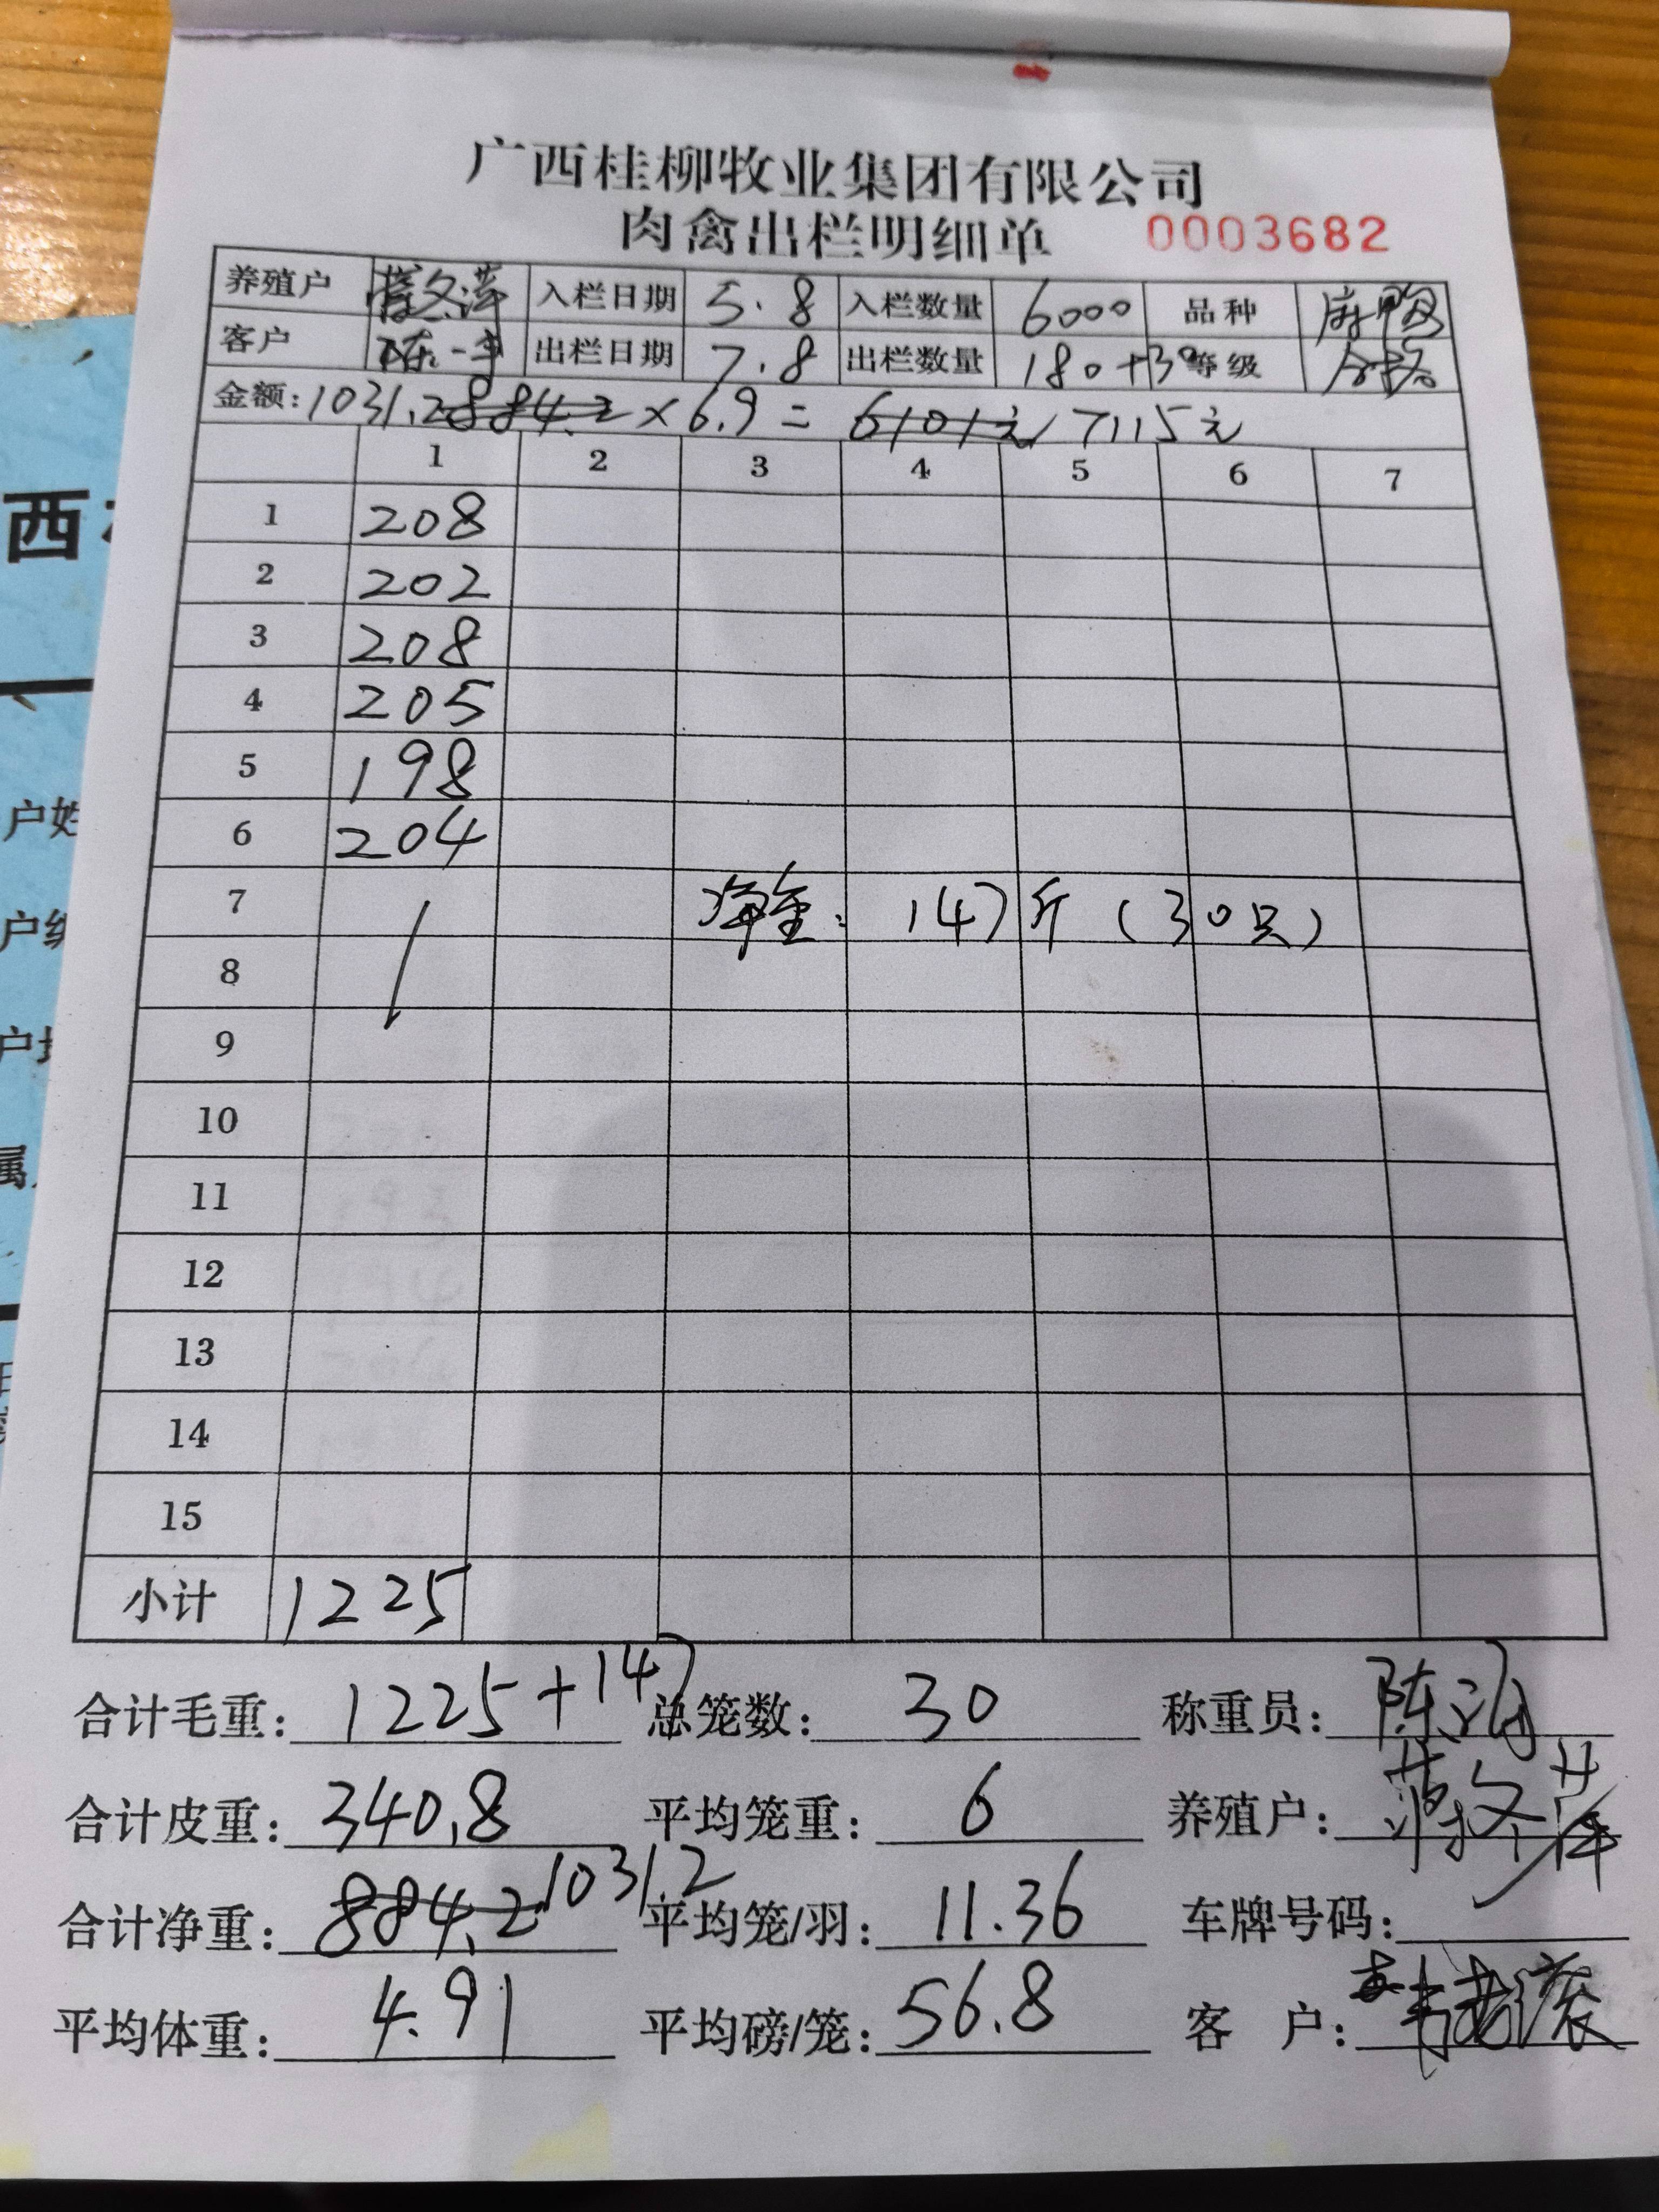 广西桂柳牧业集团有限公司
肉禽出栏明细单 0003682
养殖户 入栏日期 5.8 入栏数量 6000 品种 麻鸭
客户 陈 出栏日期 7.8 出栏数量 180+30 等级 合格
金额: 1031.2 884.2 × 6.9 = 6101元 7115元
1 2 3 4 5 6 7
1 208
2 202
3 208
4 205
5 198
6 204
7 净重: 147斤 (30只)
8
9
10
11
12
13
14
15
小计 1225
合计毛重: 1225+147 总笼数: 30 称重员: 陈
合计皮重: 340.8 平均笼重: 6 养殖户:
合计净重: 884.2 1031.2 平均笼/羽: 11.36 车牌号码:
平均体重: 4.91 平均磅/笼: 56.8 客 户:
西
户姓
户
户
属